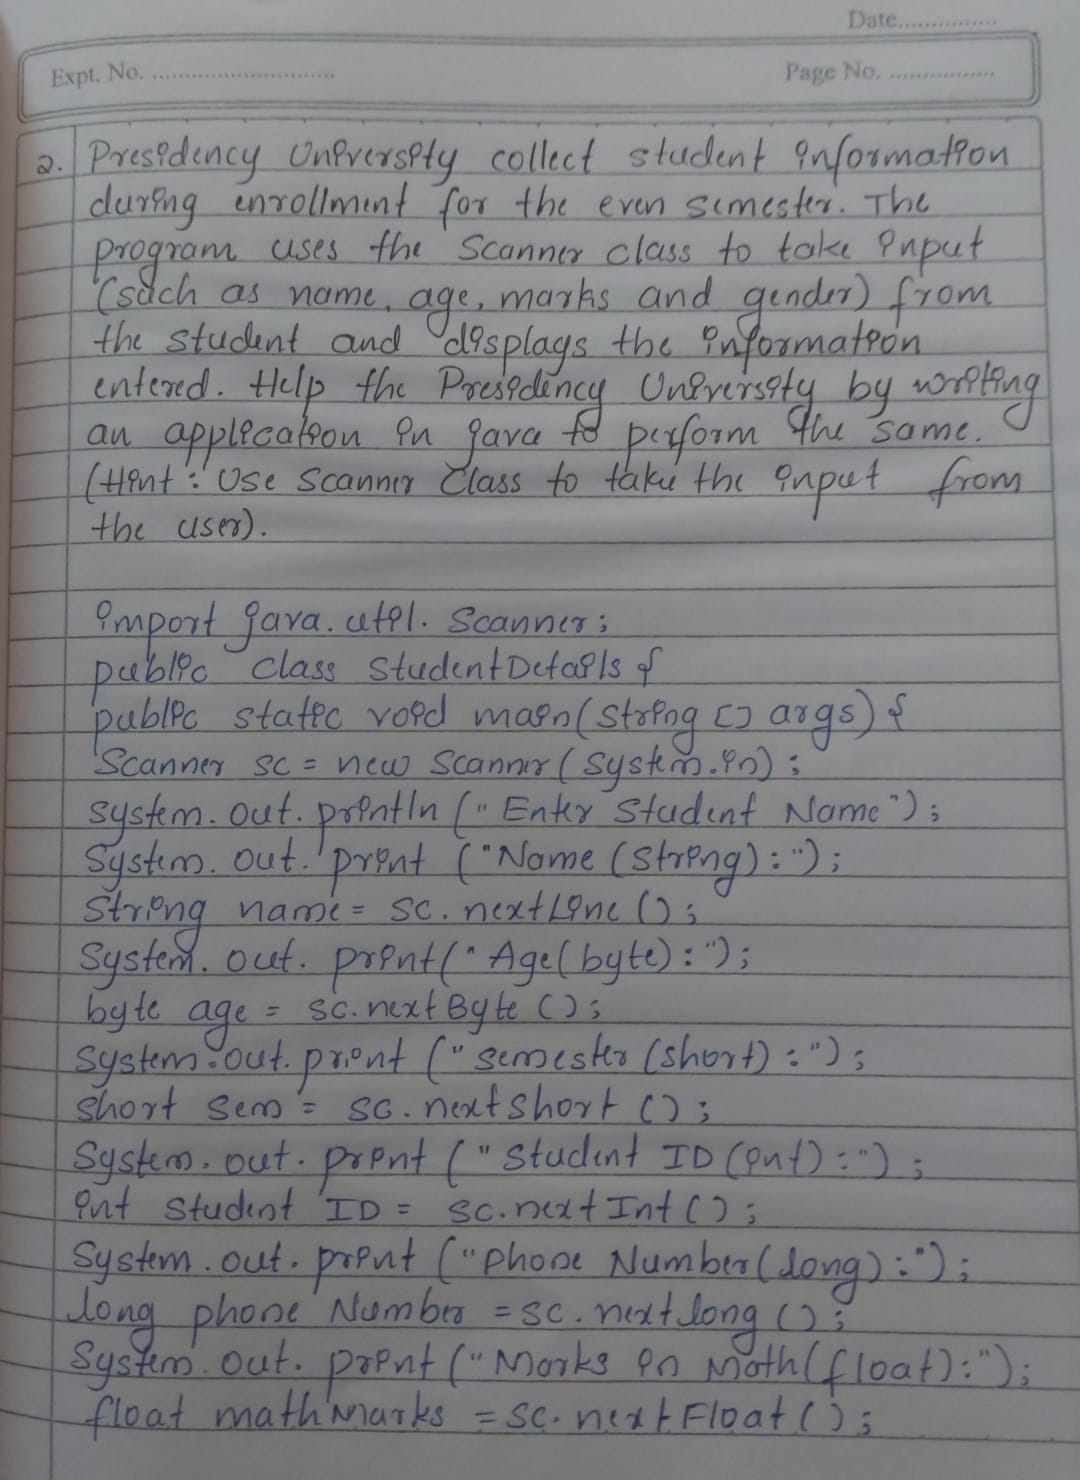 Date................
Expt. No. ..............................
Page No. .................
2. Presidency University collect student information
during enrollment for the even semester. The
program uses the Scanner class to take input
(such as name, age, marks and gender) from
the student and displays the information
entered. Help the Presidency University by writing
an application in java to perform the same.
(Hint : Use Scanner Class to take the input from
the user).
import java.util.Scanner;
public class StudentDetails {
public static void main(String [] args) {
Scanner sc = new Scanner (System.in);
system.out.println ("Enter Student Name");
System.out.print ("Name (String):");
String name = sc.nextLine ();
System.out.print("Age(byte):");
byte age = sc.nextByte ();
system.out.print ("semester (short) :");
short sem = sc.nextshort ();
System.out.print ("Student ID (int) :");
int Student ID = sc.next Int ();
System.out.print ("phone Number(long):");
long phone Number = sc.next long ();
System.out.print ("Marks in Math(float):");
float mathMarks = sc.nextFloat ();